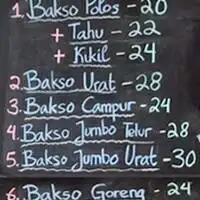 1. Bakso Polos - 20
+ Tahu - 22
+ Kikil - 24
2. Bakso Urat - 28
3. Bakso Campur - 24
4. Bakso Jumbo Telur - 28
5. Bakso Jumbo Urat - 30
6. Bakso Goreng - 24